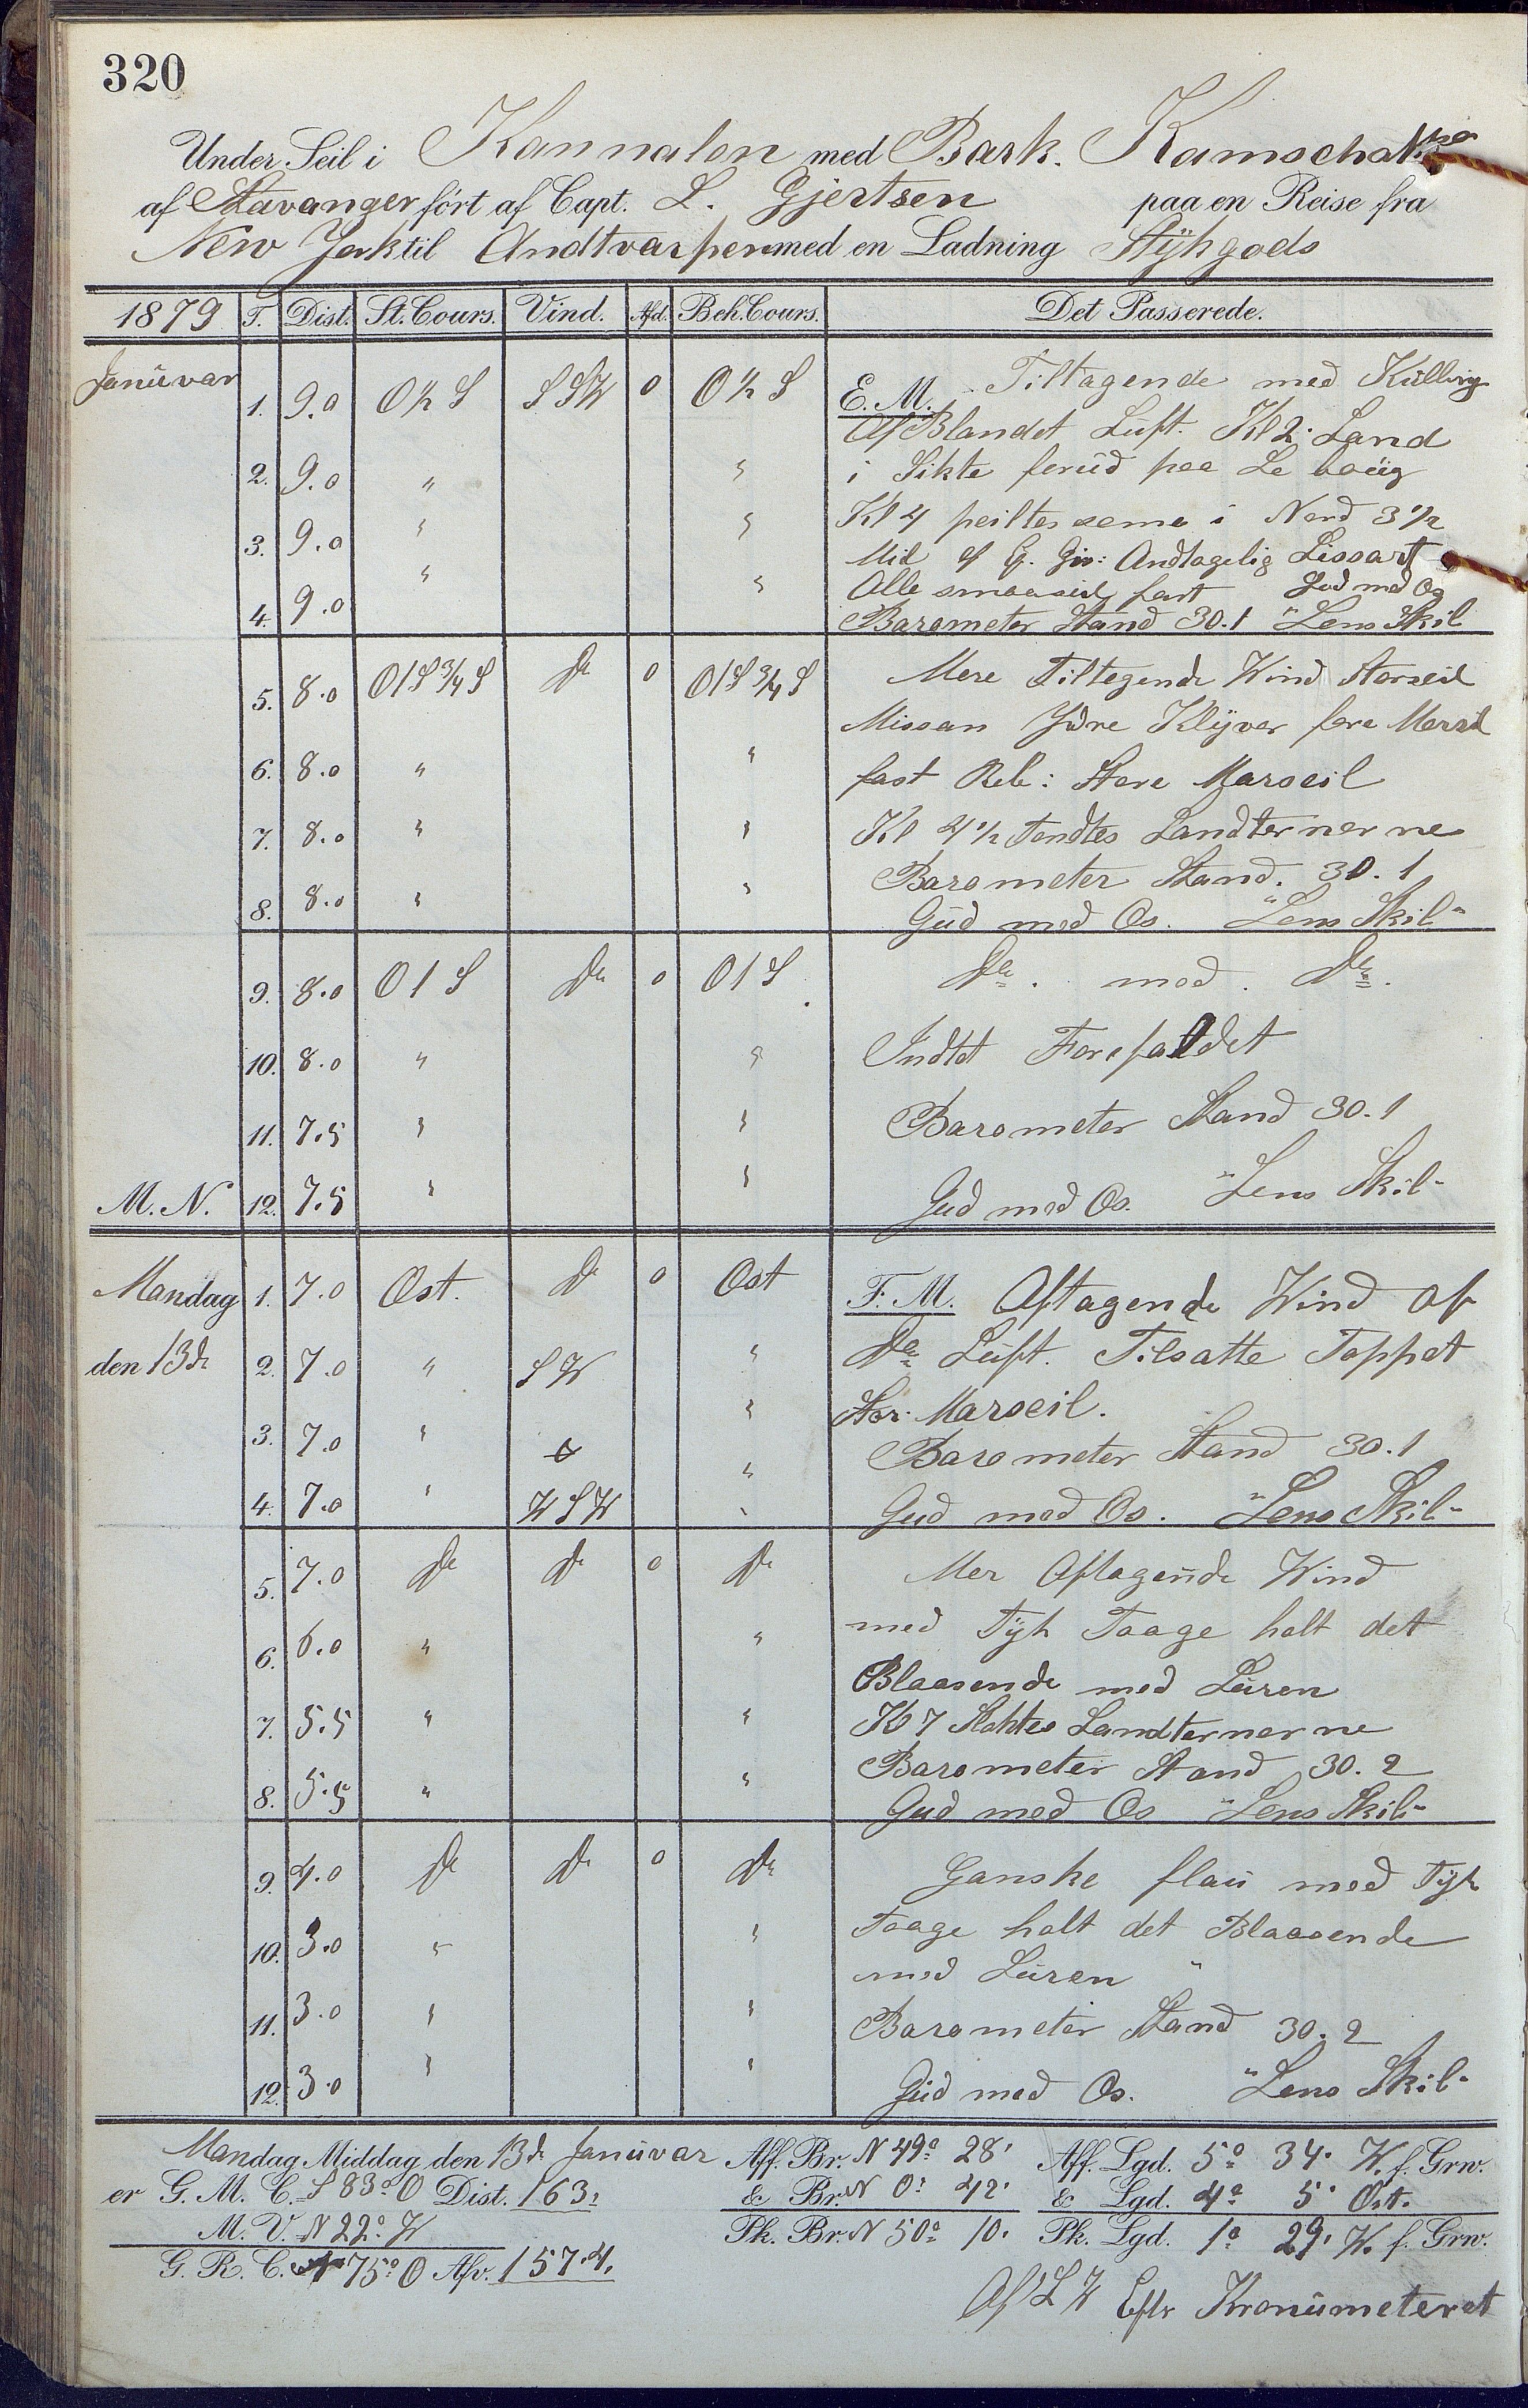 320
Under Seil i Kannalen med Bark. Kamschatka
af Stavanger ført af Capt. L. Gjertsen paa en Reise fra
New York til Andtvarpen med en Ladning Stÿkgods
1879 T. Dist. St. Cours. Vind. Afd. Beh. Cours. Det Passerede.
Januvar 1. 9.0 O ½ S S S W 0 O ½ S E. M. Tiltagende med Kulling
Af Blandet Luft. Kl 2. Land
2. 9.0 " " i Sikte forud paa Le boug
3. 9.0 " " Kl 4 peiltes seme i Nord 3 ½
Mil af G. Giv: Andtagelig Lissart
4. 9.0 " " Alle smaaseil fast Gud med Os
Barometer Stand 30.1 "Lens Skib
5. 8.0 O 1 S ¾ S Do 0 O 1 S ¾ S Mere Tiltegende Wind Storseil
Missan Ydre Klÿver fore Merseil
6. 8.0 " " fast Reb: Store Marseil
7. 8.0 " " Kl 4 ½ Tendtes Landternerne
Barometer Stand. 30.1
8. 8.0 " " Gud med Os. "Lens Skib"
9. 8.0 O 1 S Do 0 O 1 S Do. med. Do.
10. 8.0 " " Indtet Forefaldet
11. 7.5 " " Barometer Stand 30.1
M. N. 12. 7.5 " " Gud med Os. "Lens Skib"
Mandag 1. 7.0 Ost. Do 0 Ost F. M. Aftagende Wind af
den 13de 2. 7.0 " S W " Do Luft. Tilsatte Toppet
Stor. Marseil.
3. 7.0 " " Barometer Stand 30.1
4. 7.0 " W S W " Gud med Os. "Lens Skib"
5. 7.0 Do Do 0 Do Mer Aftagende Wind
6. 6.0 " " med Tÿk Taage holt det
Blaasende med Luren
7. 5.5 " " Kl 7 Slohtes Landternerne
Barometer Stand 30.2
8. 5.5 " " Gud med Os "Lens Skib"
9. 4.0 Do Do 0 Do Ganske flau med Tÿk
10. 3.0 " " Taage holt det Blaasende
med Luren "
11. 3.0 " " Barometer Stand 30.2
12. 3.0 " " Gud med Os. "Lens Skib"
Mandag Middag den 13de Januvar Aff. Br. N 49° 28' Aff. Lgd. 5° 34' W. f. Grw.
er G. M. C. S 83° O Dist. 163. & Br. N 0° 42' & Lgd. 4° 5' Ost.
M. V. N 22° W Pk. Br. N 50° 10' Pk. Lgd. 1° 29' W. f. Grw.
G. R. C. 75° O Afv. 157.4.
Af L W Eftr Kronumeteret